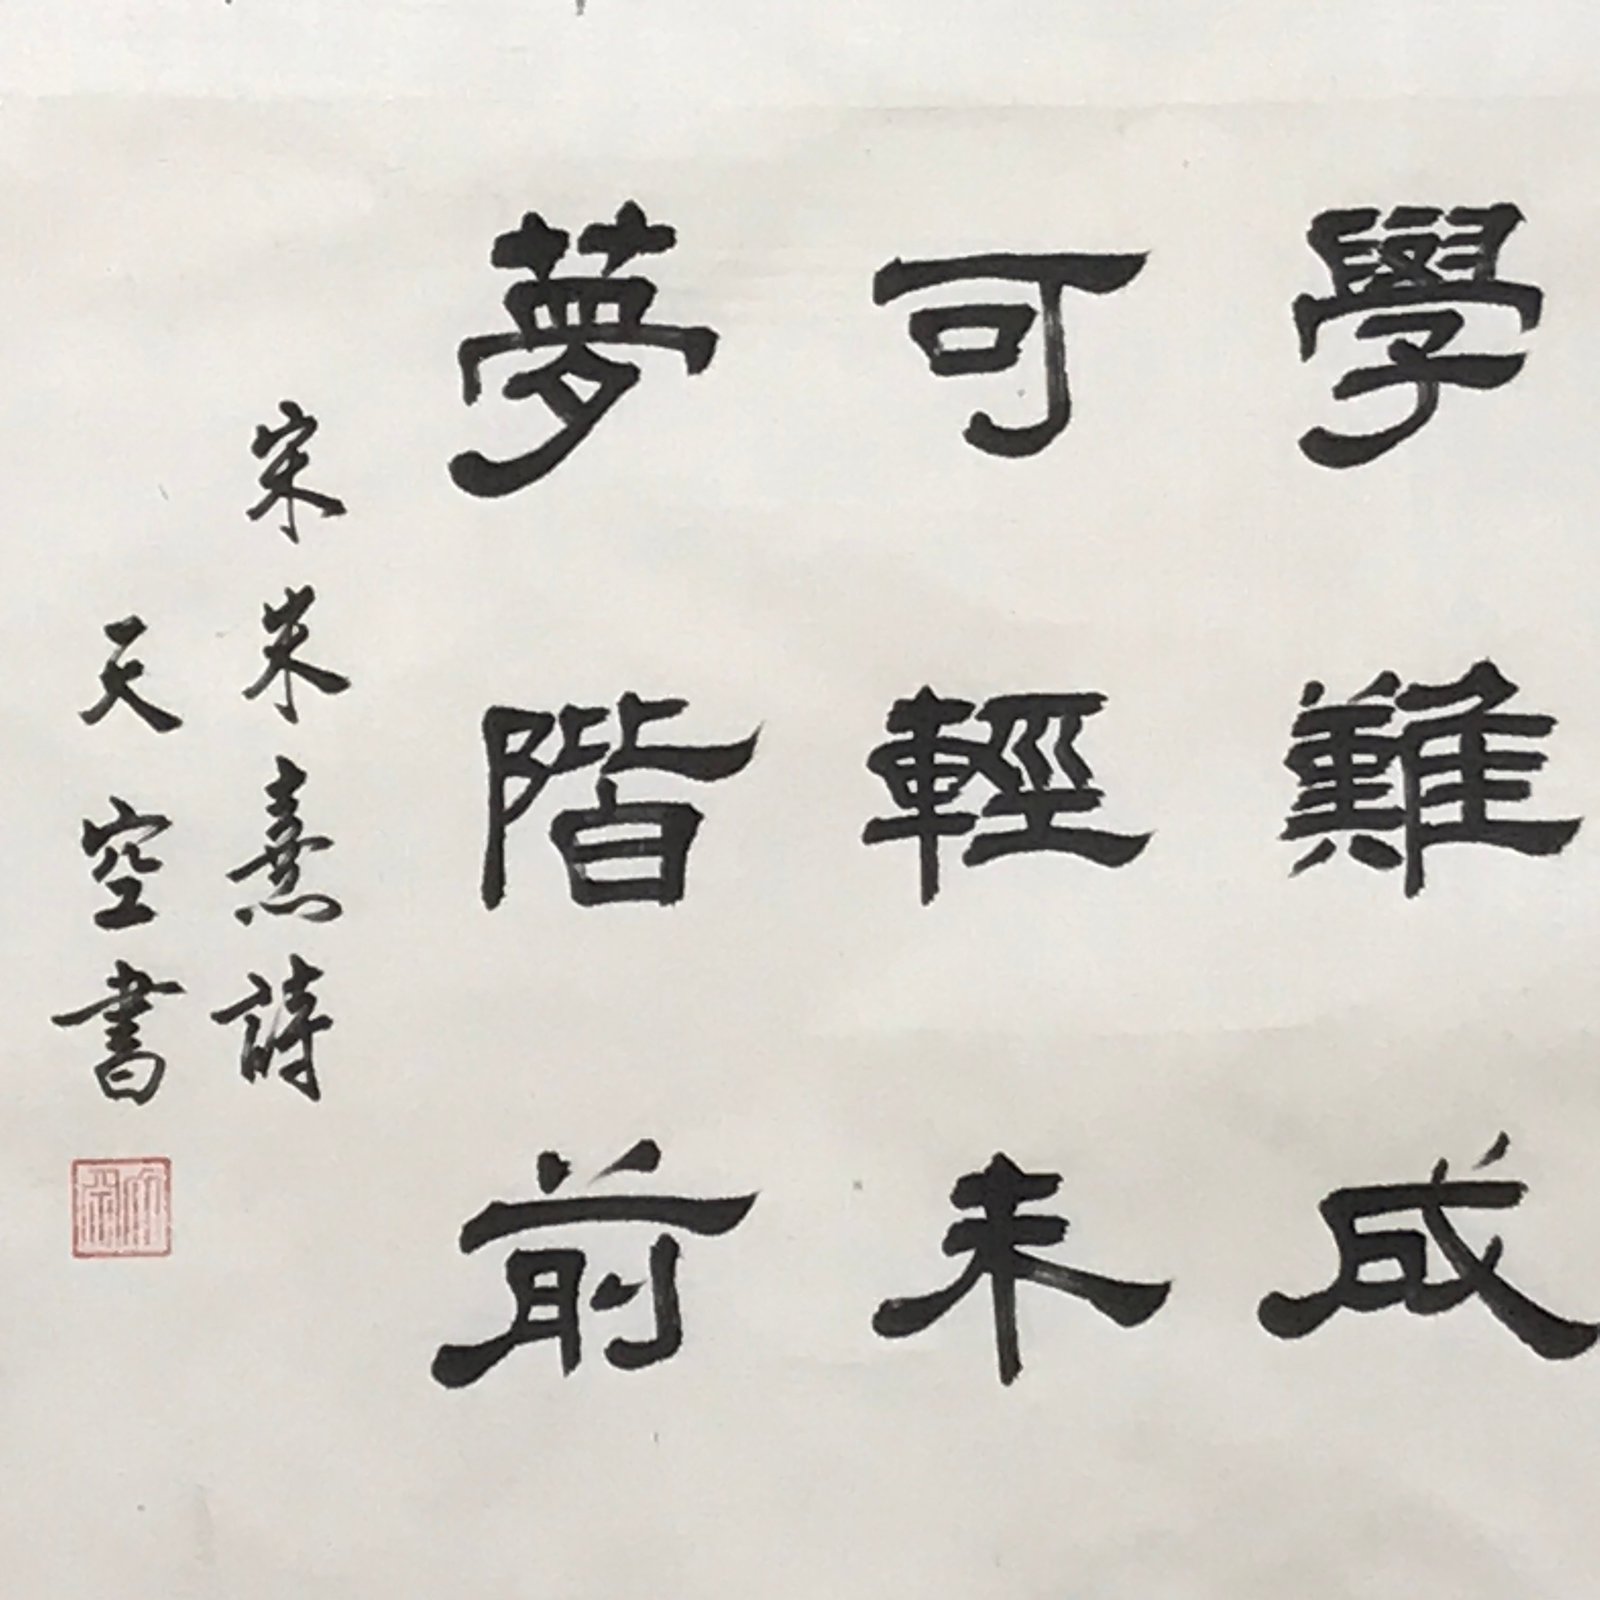 學難成
可輕未
夢階前
宋朱熹詩
天空書